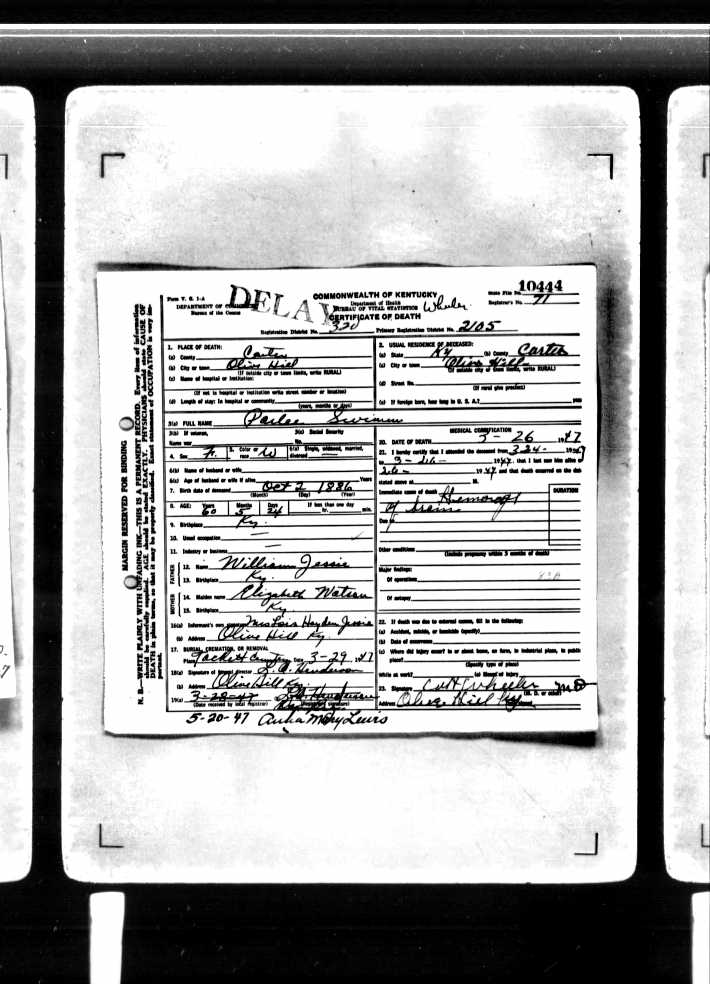 Form V. S. 1-A
DEPARTMENT OF COMMERCE
Bureau of the Census
DELAY
COMMONWEALTH OF KENTUCKY
Department of Health
BUREAU OF VITAL STATISTICS Wheeler
CERTIFICATE OF DEATH
State File No. 10444
Registrar's No. 71
Registration District No. 320 Primary Registration District No. 2105
MARGIN RESERVED FOR BINDING
N. B.—WRITE PLAINLY WITH UNFADING INK—THIS IS A PERMANENT RECORD. Every item of information
should be carefully supplied. AGE should be stated EXACTLY. PHYSICIANS should state CAUSE OF
DEATH in plain terms, so that it may be properly classified. Exact statement of OCCUPATION is very im-
portant.
1. PLACE OF DEATH:
(a) County Carter
(b) City or town Olive Hill
(If outside city or town limits, write RURAL)
(c) Name of hospital or institution:
(If not in hospital or institution write street number or location)
(d) Length of stay: In hospital or community
(years, months or days)
2. USUAL RESIDENCE OF DECEASED:
(a) State Ky (b) County Carter
(c) City or town Olive Hill
(If outside city or town limits, write RURAL)
(d) Street No.
(If rural give precinct)
(e) If foreign born, how long in U. S. A.? years
3(a) FULL NAME Parlee Swimm
3(b) If veteran, 3(c) Social Security
Name war No.
4. Sex F. 5. Color or race W 6(a) Single, widowed, married, divorced
6(b) Name of husband or wife
6(c) Age of husband or wife if alive Years
7. Birth date of deceased Oct 2 1886
(Month) (Day) (Year)
8. AGE: Years 60 Months 5 Days 24 If less than one day hr. min.
9. Birthplace Ky.
10. Usual occupation
11. Industry or business
FATHER
12. Name William Jessie
13. Birthplace Ky.
MOTHER
14. Maiden name Elizabeth Watson
15. Birthplace Ky.
16(a) Informant's own signature Mrs Lois Hayden Jessie
(b) Address Olive Hill Ky.
17. BURIAL, CREMATION, OR REMOVAL
Place Tackett Cemetery Date 3-29, 1947
18(a) Signature of funeral director L. A. Henderson
(b) Address Olive Hill Ky.
19(a) 3-28-47 L. A. Henderson
(Date received by local registrar) (Registrar's signature)
5-20-47 Mary Lewis
MEDICAL CERTIFICATION
20. DATE OF DEATH 3-26 1947
21. I hereby certify that I attended the deceased from 3-24- 1947
to 3-26- 1947, that I last saw him alive on
26- 1947 and that death occurred on the date
stated above at M.
Immediate cause of death Hemorage
of brain
DURATION
Due to
Other conditions
(Include pregnancy within 3 months of death)
Major findings:
Of operations
Of autopsy
22. If death was due to external causes, fill in the following:
(a) Accident, suicide, or homicide (specify)
(b) Date of occurrence
(c) Where did injury occur? In or about home, on farm, in industrial place, in public
place?
(Specify type of place)
While at work? (e) Means of injury
23. Signature Wheeler MD
(M. D. or other)
Address Olive Hill Ky